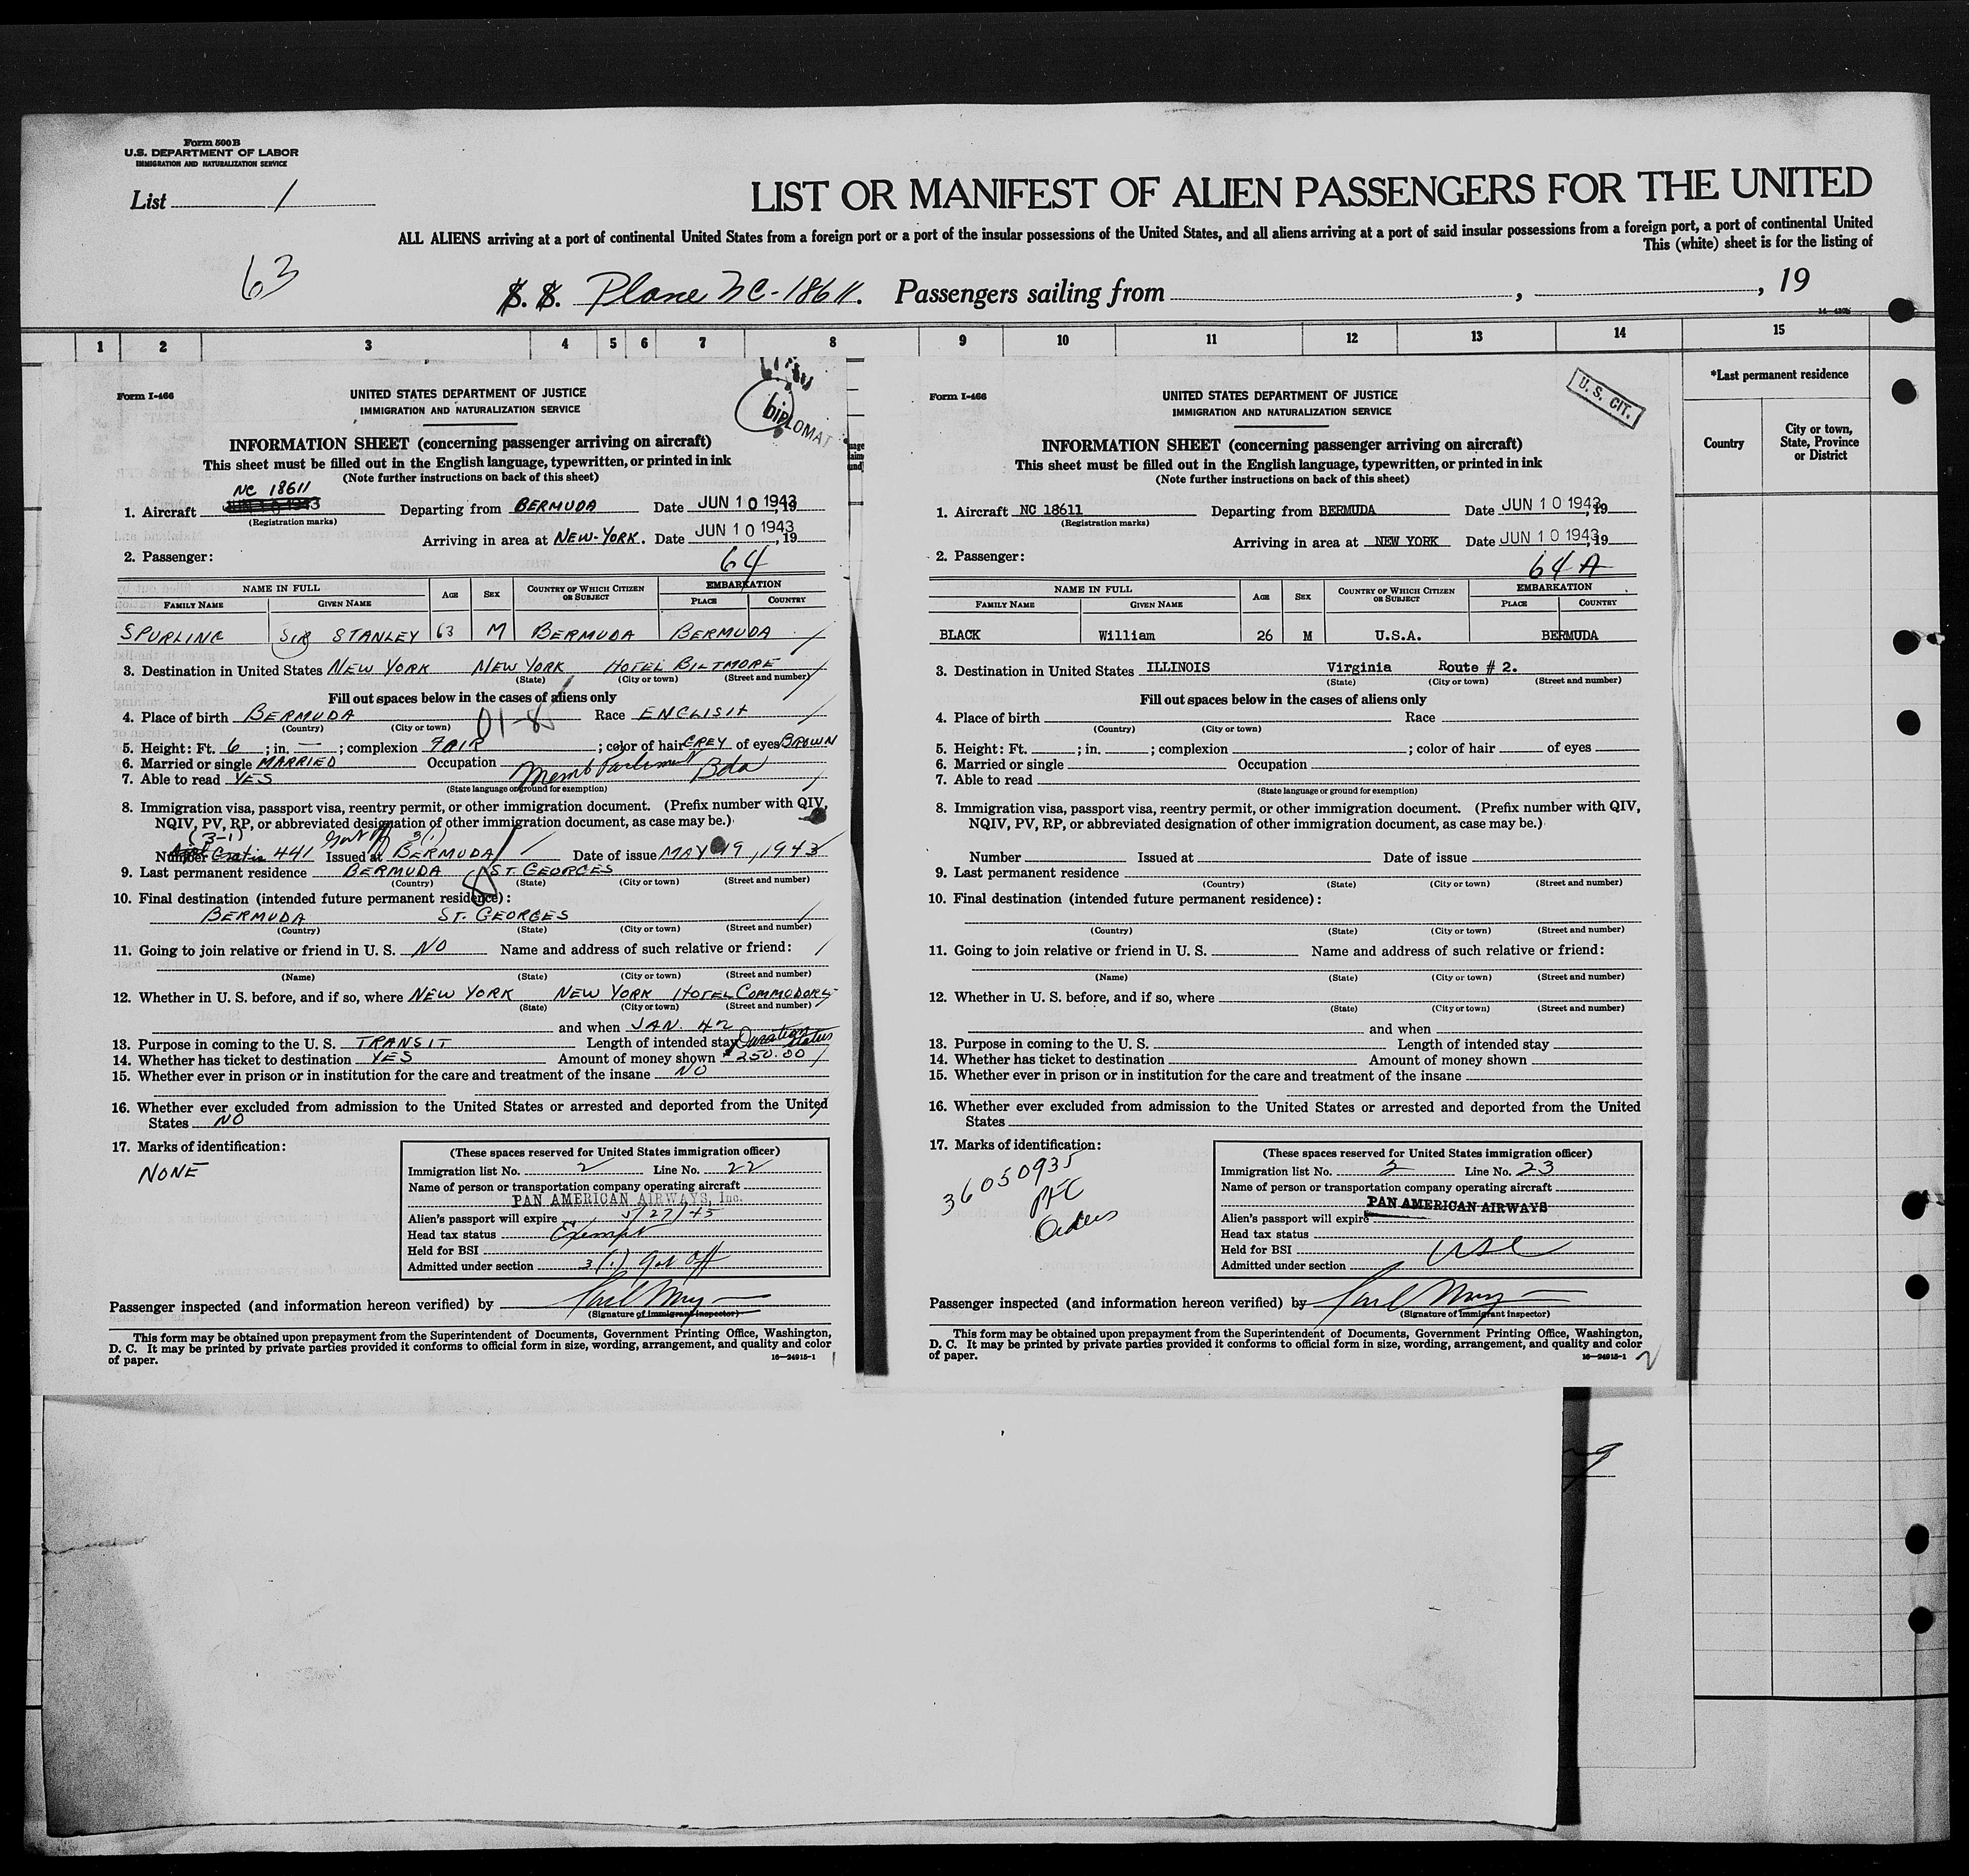 Form 500B
U.S. DEPARTMENT OF LABOR
IMMIGRATION AND NATURALIZATION SERVICE
List 1
LIST OR MANIFEST OF ALIEN PASSENGERS FOR THE UNITED
ALL ALIENS arriving at a port of continental United States from a foreign port or a port of the insular possessions of the United States, and all aliens arriving at a port of said insular possessions from a foreign port, a port of continental United
This (white) sheet is for the listing of
63
S. S. Plane NC-18611. Passengers sailing from , , 19
1 2 3 4 5 6 7 8 9 10 11 12 13 14 15
*Last permanent residence
Country
City or town, State, Province or District
Form I-466
UNITED STATES DEPARTMENT OF JUSTICE
IMMIGRATION AND NATURALIZATION SERVICE
DIPLOMAT
INFORMATION SHEET (concerning passenger arriving on aircraft)
This sheet must be filled out in the English language, typewritten, or printed in ink
(Note further instructions on back of this sheet)
NC 18611
1. Aircraft JUN 10 1943 Departing from BERMUDA Date JUN 10 1943, 19
(Registration marks)
Arriving in area at NEW-YORK. Date JUN 10 1943, 19
2. Passenger: 64
NAME IN FULL AGE SEX COUNTRY OF WHICH CITIZEN OR SUBJECT EMBARKATION
FAMILY NAME GIVEN NAME PLACE COUNTRY
SPURLING SIR STANLEY 63 M BERMUDA BERMUDA
3. Destination in United States NEW YORK NEW YORK HOTEL BILTMORE
(State) (City or town) (Street and number)
Fill out spaces below in the cases of aliens only
4. Place of birth BERMUDA Race ENGLISH
(Country) (City or town)
5. Height: Ft. 6; in. —; complexion FAIR; color of hair GREY of eyes BROWN
6. Married or single MARRIED Occupation Memb Parliament Bda
7. Able to read YES
(State language or ground for exemption)
8. Immigration visa, passport visa, reentry permit, or other immigration document. (Prefix number with QIV, NQIV, PV, RP, or abbreviated designation of other immigration document, as case may be.)
(3-1) 3(1)
Number Gratis 441 Issued at BERMUDA Date of issue MAY 19, 1943
9. Last permanent residence BERMUDA ST. GEORGES
(Country) (State) (City or town) (Street and number)
10. Final destination (intended future permanent residence):
BERMUDA ST. GEORGES
(Country) (State) (City or town) (Street and number)
11. Going to join relative or friend in U. S. NO Name and address of such relative or friend:
(Name) (State) (City or town) (Street and number)
12. Whether in U. S. before, and if so, where NEW YORK NEW YORK HOTEL COMMODORE
(State) (City or town) (Street and number)
and when JAN. 42
13. Purpose in coming to the U. S. TRANSIT Length of intended stay Duration status
14. Whether has ticket to destination YES Amount of money shown $250.00
15. Whether ever in prison or in institution for the care and treatment of the insane NO
16. Whether ever excluded from admission to the United States or arrested and deported from the United
States NO
17. Marks of identification:
NONE
(These spaces reserved for United States immigration officer)
Immigration list No. 2 Line No. 22
Name of person or transportation company operating aircraft
PAN AMERICAN AIRWAYS, Inc.
Alien's passport will expire 5/27/45
Head tax status Exempt
Held for BSI
Admitted under section 3(1) Gov Off
Passenger inspected (and information hereon verified) by
(Signature of immigrant inspector)
This form may be obtained upon prepayment from the Superintendent of Documents, Government Printing Office, Washington,
D. C. It may be printed by private parties provided it conforms to official form in size, wording, arrangement, and quality and color
of paper. 16—24915-1
Form I-466
UNITED STATES DEPARTMENT OF JUSTICE
IMMIGRATION AND NATURALIZATION SERVICE
U. S. CIT.
INFORMATION SHEET (concerning passenger arriving on aircraft)
This sheet must be filled out in the English language, typewritten, or printed in ink
(Note further instructions on back of this sheet)
1. Aircraft NC 18611 Departing from BERMUDA Date JUN 10 1943, 19
(Registration marks)
Arriving in area at NEW YORK Date JUN 10 1943, 19
2. Passenger: 64 A
NAME IN FULL AGE SEX COUNTRY OF WHICH CITIZEN OR SUBJECT EMBARKATION
FAMILY NAME GIVEN NAME PLACE COUNTRY
BLACK William 26 M U.S.A. BERMUDA
3. Destination in United States ILLINOIS Virginia Route # 2.
(State) (City or town) (Street and number)
Fill out spaces below in the cases of aliens only
4. Place of birth Race
(Country) (City or town)
5. Height: Ft. ; in. ; complexion ; color of hair of eyes
6. Married or single Occupation
7. Able to read
(State language or ground for exemption)
8. Immigration visa, passport visa, reentry permit, or other immigration document. (Prefix number with QIV, NQIV, PV, RP, or abbreviated designation of other immigration document, as case may be.)
Number Issued at Date of issue
9. Last permanent residence
(Country) (State) (City or town) (Street and number)
10. Final destination (intended future permanent residence):
(Country) (State) (City or town) (Street and number)
11. Going to join relative or friend in U. S. Name and address of such relative or friend:
(Name) (State) (City or town) (Street and number)
12. Whether in U. S. before, and if so, where
(State) (City or town) (Street and number)
and when
13. Purpose in coming to the U. S. Length of intended stay
14. Whether has ticket to destination Amount of money shown
15. Whether ever in prison or in institution for the care and treatment of the insane
16. Whether ever excluded from admission to the United States or arrested and deported from the United
States
17. Marks of identification:
36050935
PFC
Orders
(These spaces reserved for United States immigration officer)
Immigration list No. 2 Line No. 23
Name of person or transportation company operating aircraft
PAN AMERICAN AIRWAYS
Alien's passport will expire
Head tax status
Held for BSI USC
Admitted under section
Passenger inspected (and information hereon verified) by
(Signature of immigrant inspector)
This form may be obtained upon prepayment from the Superintendent of Documents, Government Printing Office, Washington,
D. C. It may be printed by private parties provided it conforms to official form in size, wording, arrangement, and quality and color
of paper. 16—24915-1 2